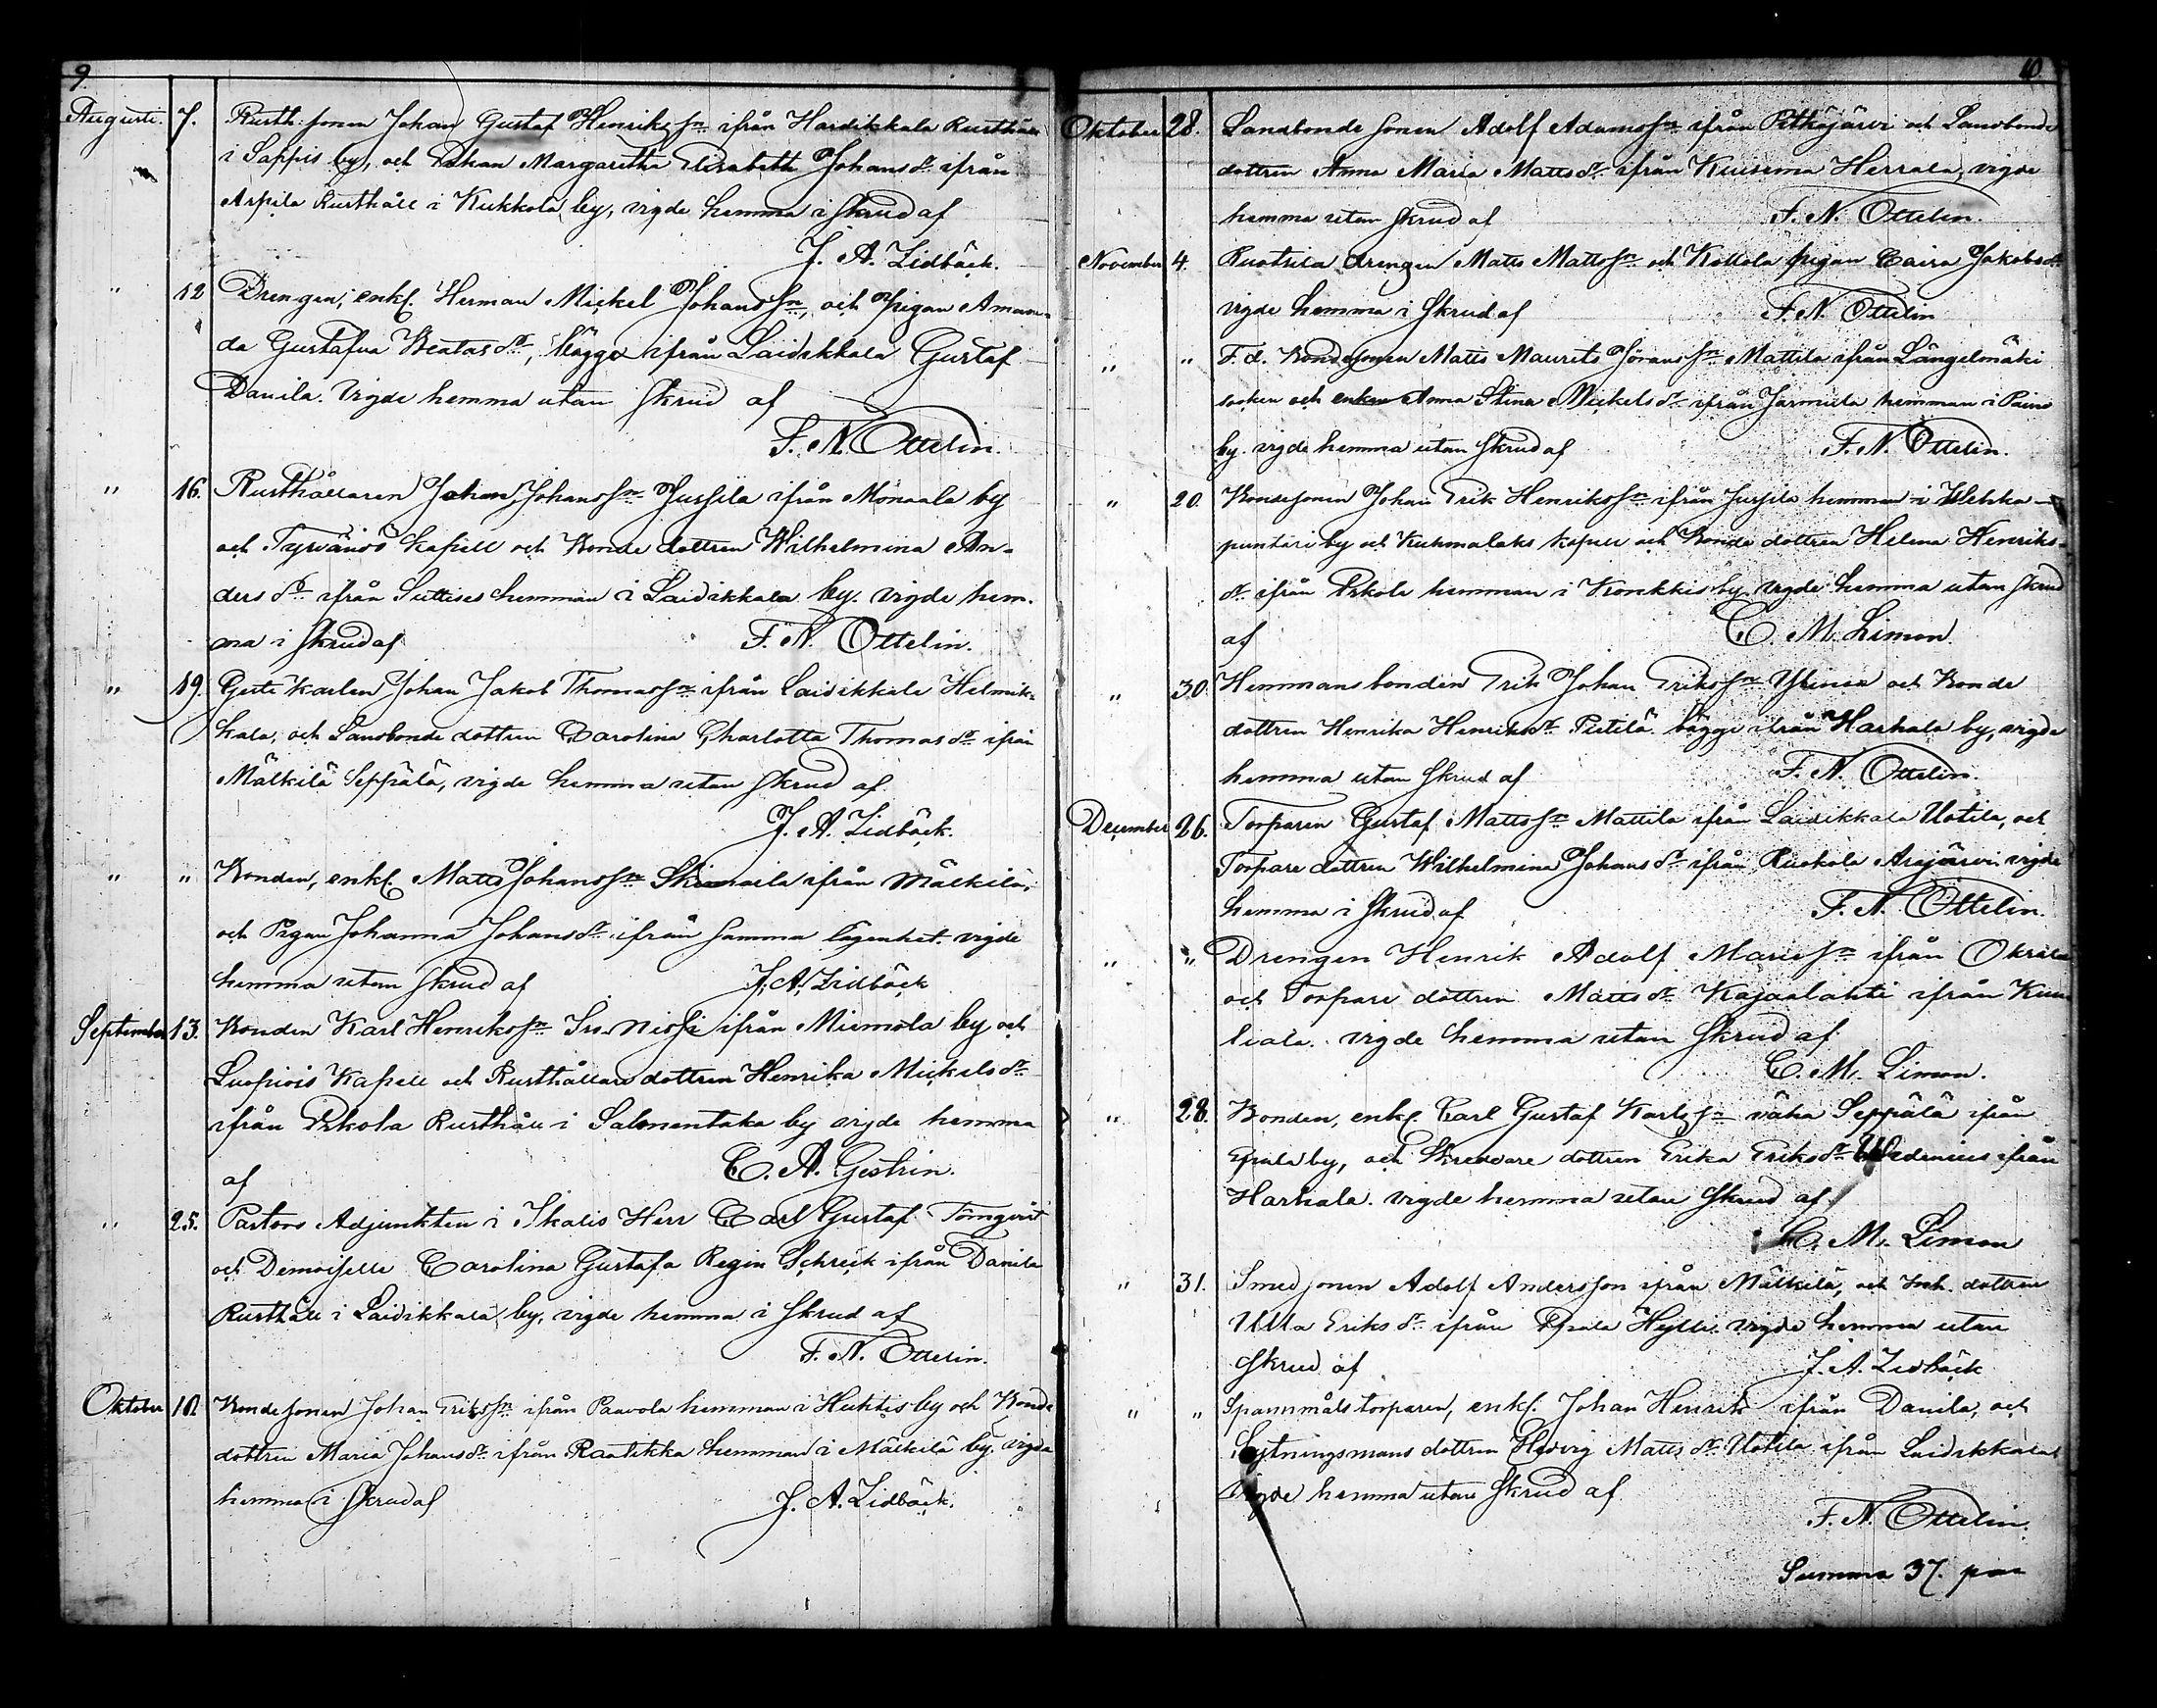 9.
Augusti. 7. Rusth. sonen Johan Gustaf Henriksſn ifrån Hardikkala Rusthåll
i Sappis by, och Pigan Margaretha Elisabeth Johansdr ifrån
Arpila Rusthåll i Kukkola by, vigde hemma i skrud af
J. A. Lidbäck.
" 12 Drengen, enkl. Herman Mickel Johansſn, och pigan Aman-
da Gustafva Beatasdr, bägge ifrån Laidikkala Gustaf
Danila. Vigde hemma utan skrud af
F. N. Ottelin.
" 16. Rusthållaren Johan Johansſn Jussila ifrån Monaala by
och Tyrvändö kapell och Bonde dottren Wilhelmina An-
dersdr ifrån Suttises hemman i Laidikkala by. vigde hem-
ma i skrud af F. N. Ottelin.
" 19. Geste karlen Johan Jakob Thomasſn ifrån Laidikkala Helmik-
kala, och Landbonde dottren Carolina Charlotta Thomasdr ifrån
Mälkilä Seppälä, vigde hemma utan skrud af
J. A. Lidbäck.
" " Bonden, enkl. Matts Johansſn ifrån Mälkilä,
och Pigan Johanna Johansdr ifrån samma lägenhet. vigde
hemma utan skrud af J. A. Lidbäck
September 13. Bonden Karl Henriksſn Iso-Nissi ifrån Miemola by och
Luopiois Kapell och Rusthållare dottren Henrika Mickelsdr
ifrån Erkola Rusthåll i Salonentaka by vigde hemma
af C. A. Gestrin.
" 25. Pastors Adjunkten i Ikalis Herr Carl Gustaf Törnqvist
och Demoiselle Carolina Gustafa Regin Schreck ifrån Danila
Rusthåll i Laidikkala by, vigde hemma i skrud af
F. N. Ottelin.
Oktober 10. Bondesonen Johan Eriksſn ifrån Paavola hemman i Huhtis by och Bonde
dottren Maria Johansdr ifrån Rautikka hemman i Mälkilä by. vigde
hemma i skrud af J. A. Lidbäck.
10.
Oktober 28. Landbonde sonen Adolf Adamsſn ifrån Pitkäjärvi och Landbonde
dottren Anna Maria Mattsdr ifrån Kuisema Herrala, vigde
hemma utan skrud af F. N. Ottelin.
November 4. Ruotsila drengen Matts Mattsſn och Kottola pigan Caisa Jakobsdr
vigde hemma i skrud af F. N. Ottelin
" " F. d. Bondesonen Matts Maurits Göransſn Mattila ifrån Längelmäki
socken och enkan Anna Stina Mickelsdr ifrån Jarmila hemman i Paino
by. vigde hemma utan skrud af F. N. Ottelin.
" 20. Bondesonen Johan Erik Henriksſn ifrån Jussila hemman i Wehka-
puntari by och Kuhmalaks kapell och Bonde dottren Helena Henriks-
dr ifrån Erkola hemman i Konkkis by. vigde hemma utan skrud
af C. M. Limon.
" 30. Hemmansbonden Erik Johan Eriksſn och Bonde
dottren Henrika Henriksdr Pietilä bägge ifrån Harhala by, vigde
hemma utan skrud af F. N. Ottelin.
December 26. Torparen Gustaf Mattsſn Mattila ifrån Laidikkala Uotila, och
Torpare dottren Wilhelmina Johansdr ifrån Ruokola Arajärvi vigde
hemma i skrud af F. N. Ottelin.
" " Drengen Henrik Adolf Mariesſn ifrån Okrala
och Torpare dottren Mattsdr Kajaalahti ifrån Kuu
liala. vigde hemma utan skrud af
C. M. Limon.
" 28. Bonden, enkl. Carl Gustaf Karlsſn väha Seppälä ifrån
Epala by, och Skreddare dottren Erika Eriksdr Wedenius ifrån
Harhala. vigde hemma utan skrud af
C. M. Limon
" 31. Smedsonen Adolf Andersson ifrån Mälkilä, och Inh. dottren
Ulla Eriksdr ifrån Epala Hylli. vigde hemma utan
skrud af J. A. Lidbäck
" " Spannmåls torparen, enkl. Johan Henrik ifrån Danila, och
Sytningsmans dottren Hedvig Mattsdr Uotila ifrån Laidikkala
vigde hemma utan skrud af
F. N. Ottelin.
Summa 37. par